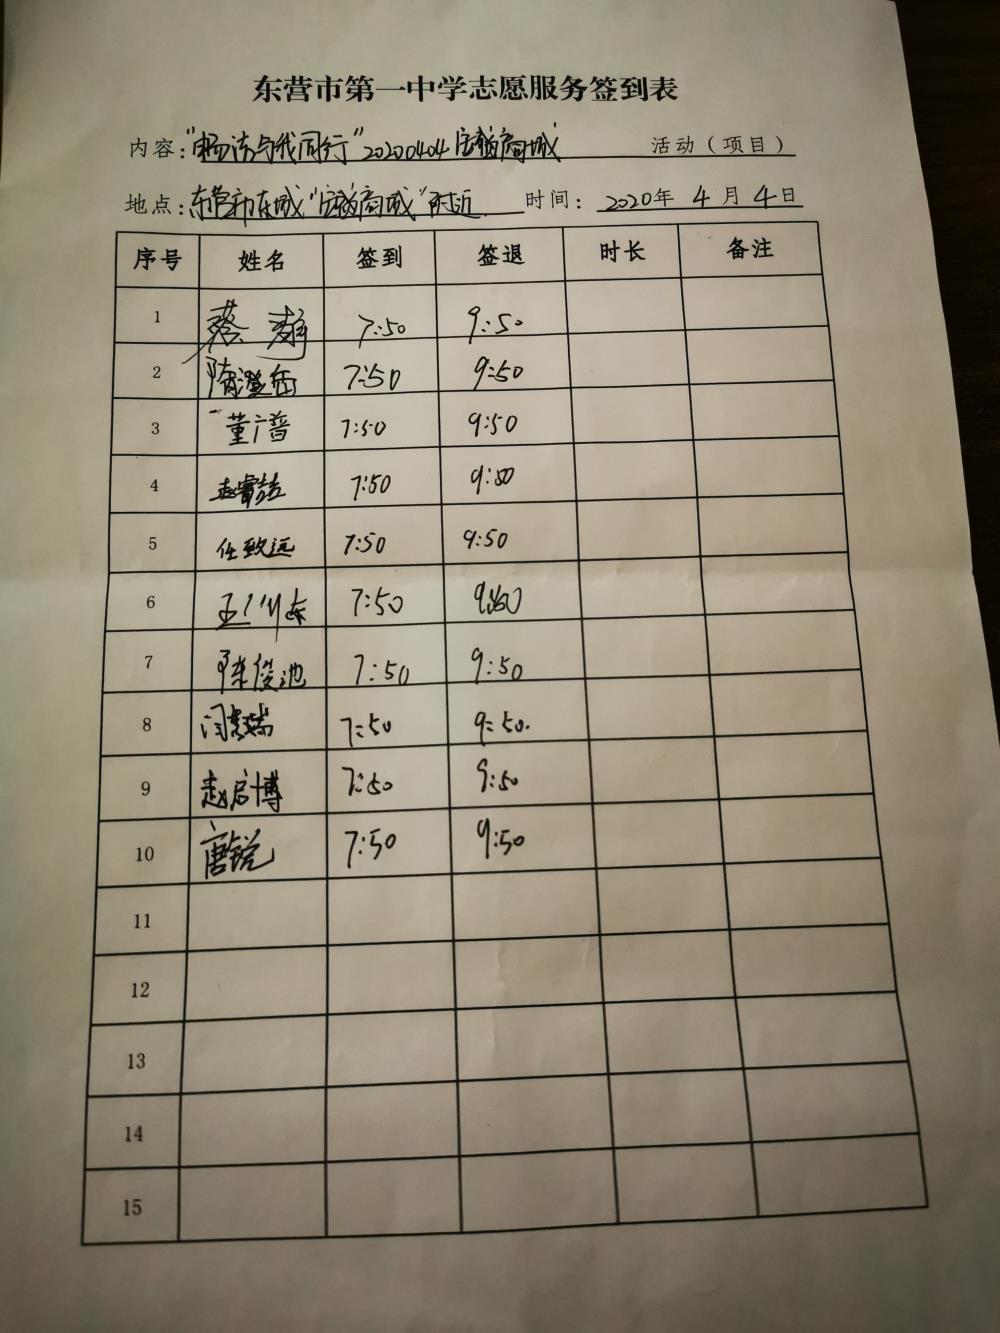 东营市第一中学志愿服务签到表
内容:"畅洁与我同行"20200404商城 活动(项目)
地点:东营市东城"商城"附近 时间: 2020年 4月 4日
序号 姓名 签到 签退 时长 备注
1 蔡 7:50 9:50
2 隋澄岳 7:50 9:50
3 董广普 7:50 9:50
4 赵睿喆 7:50 9:50
5 任致远 7:50 9:50
6 7:50 9:50
7 陈俊池 7:50 9:50
8 闫 7:50 9:50.
9 赵启博 7:50 9:50
10 唐锐 7:50 9:50
11
12
13
14
15